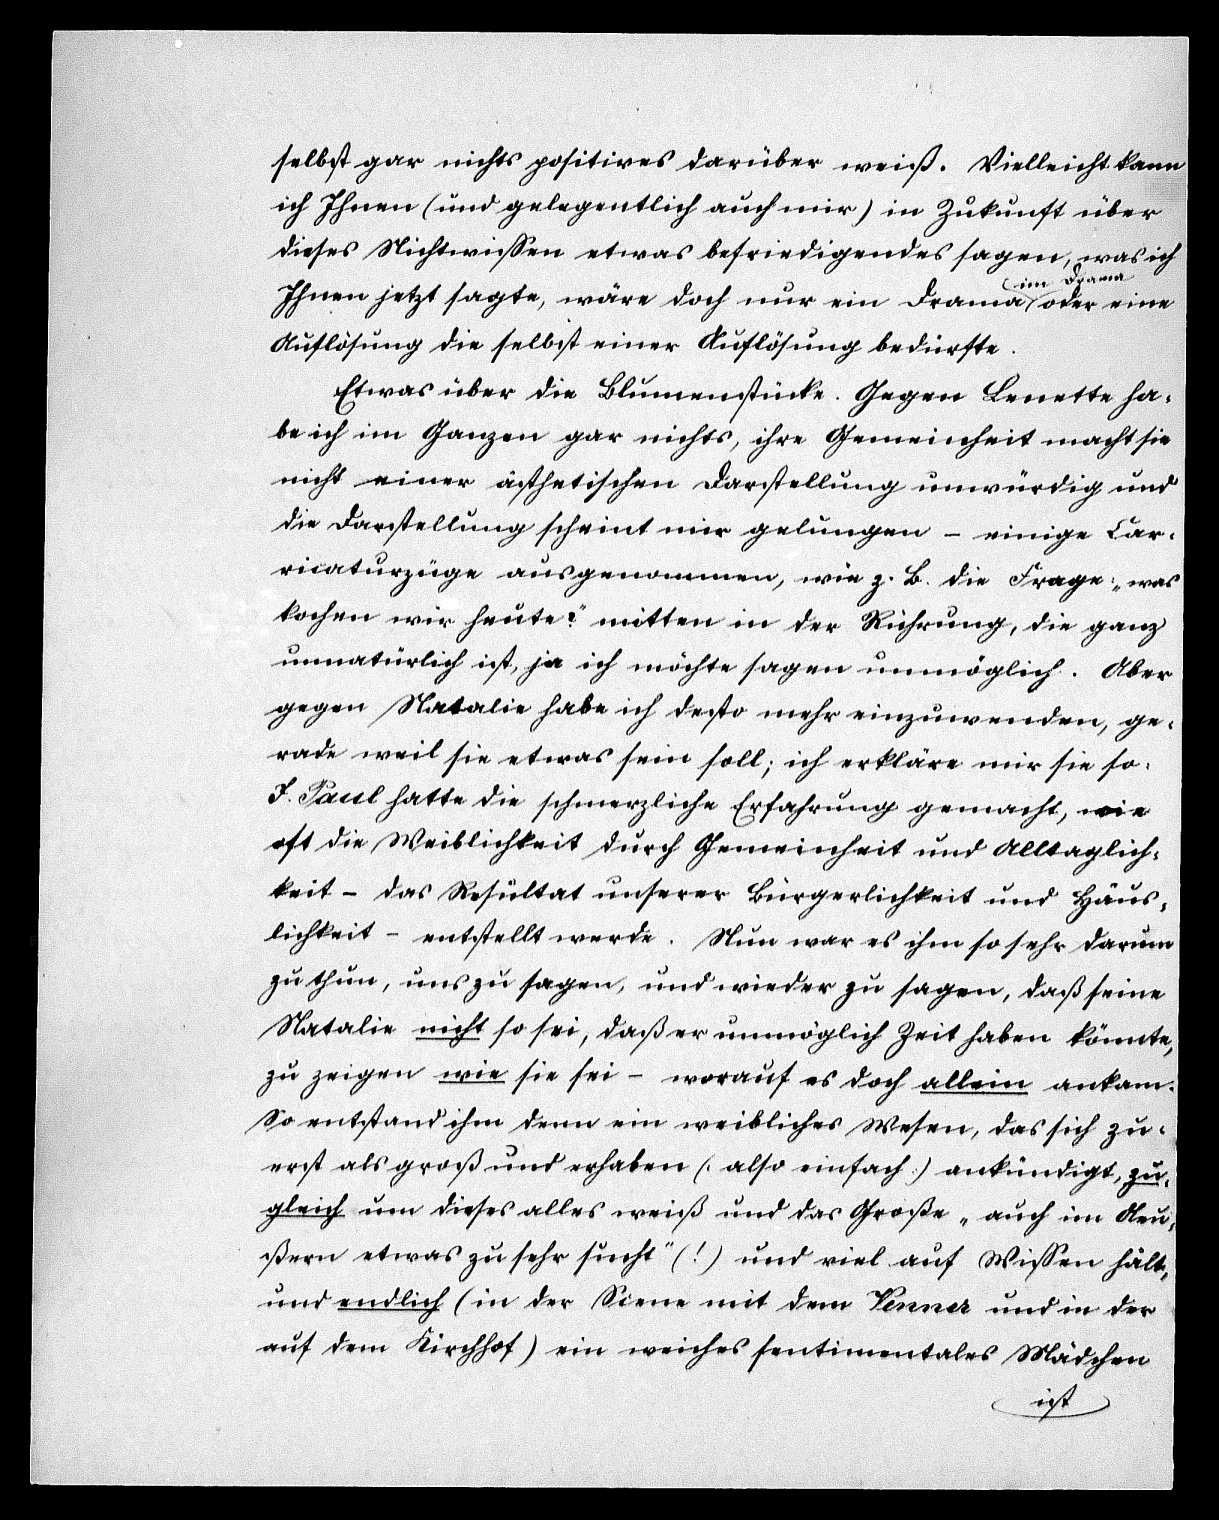 selbst gar nichts positives darüber weiß. Vielleicht kann
ich Ihnen (und gelegentlich auch mir) in Zukunft über
dieses Nichtwissen etwas befriedigendes sagen, was ich
Ihnen jetzt sagte, wäre doch nur ein Drama im Drama oder eine
Auflösung die selbst einer Auflösung bedürfte.
Etwas über die Blumenstücke. Gegen Lenette ha-
be ich im Ganzen gar nichts, ihre Gemeinheit macht sie
nicht einer ästhetischen Darstellung unwürdig und
die Darstellung scheint mir gelungen – einige Car-
ricaturzüge ausgenommen, wie z. B. die Frage: „was
kochen wir heute?" mitten in der Rührung, die ganz
unnatürlich ist, ja ich möchte sagen unmöglich. Aber
gegen Natalie habe ich desto mehr einzuwenden, ge-
rade weil sie etwas sein soll; ich erkläre mir sie so.
J. Paul hatte die schmerzliche Erfahrung gemacht, wie
oft die Weiblichkeit durch Gemeinheit und Alltaglich-
keit – das Resultat unserer Bürgerlichkeit und Häus-
lichkeit – entstellt werde. Nun war es ihm so sehr darum
zu thun, uns zu sagen, und wieder zu sagen, daß seine
Natalie nicht so sei, daß er unmöglich Zeit haben könnte,
zu zeigen wie sie sei – worauf es doch allein ankam.
So entstand ihm denn ein weibliches Wesen, das sich zu-
erst als groß und erhaben (: also einfach :) ankündigt, zu-
gleich um dieses alles weiß und das Große „auch im Aeu-
ßern etwas zu sehr sucht" (!) und viel auf Wissen hält,
und endlich (in der Scene mit dem Venner und in der
auf dem Kirchhof) ein weiches sentimentales Mädchen
ist